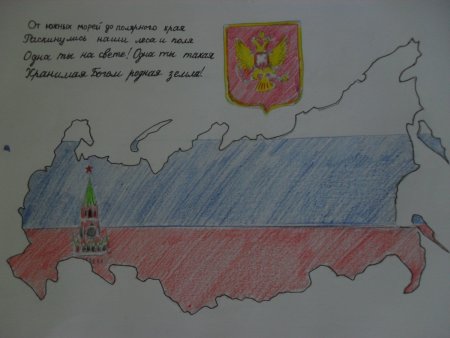 От южных морей до полярного края
Раскинулись наши леса и поля
Одна ты на свете! Одна ты такая
Хранимая Богом родная земля!